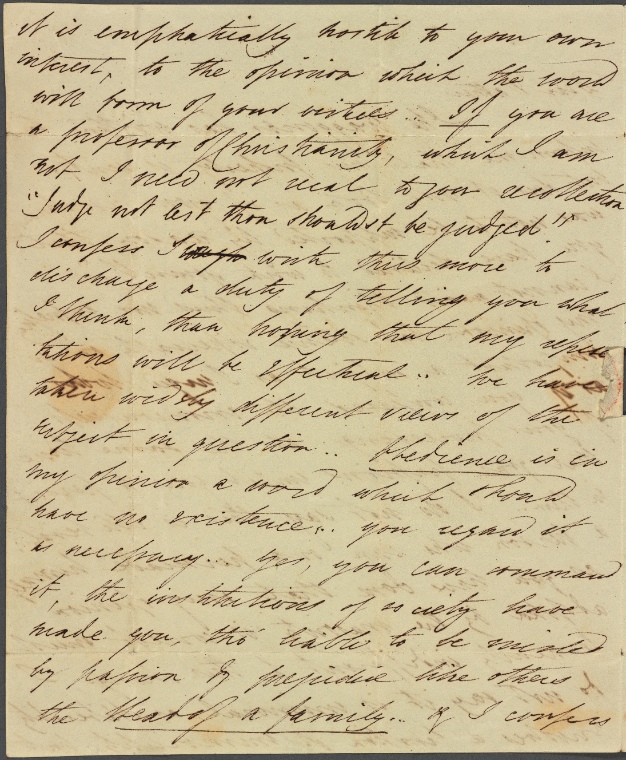 it is emphatically hostile to your own
interest, to the opinion which the world
will form of your virtues.. If you are
a professor of Christianity, which I am
not I need not recal to your recollection
"Judge not lest thou shouldst be judged"
I confess I write this more to
discharge a duty of telling you what
I think, than hoping that my represen
tations will be effectual.. We have
taken widely different views of the
subject in question.. Obedience is in
my opinion a word which should
have no existence.. you regard it
as necessary.. Yes, you can command
it, the institutions of society have
made you, tho' liable to be misled
by passion & prejudice like others
the Head of a family.. & I confess